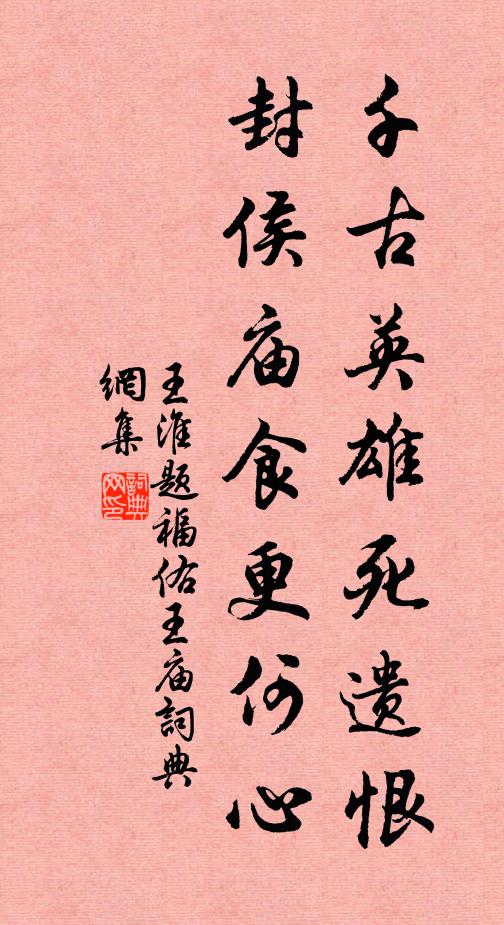 千古英雄死遗恨
封侯庙食更何心
王淮题福佑王庙詞典
網集
詞典
网印